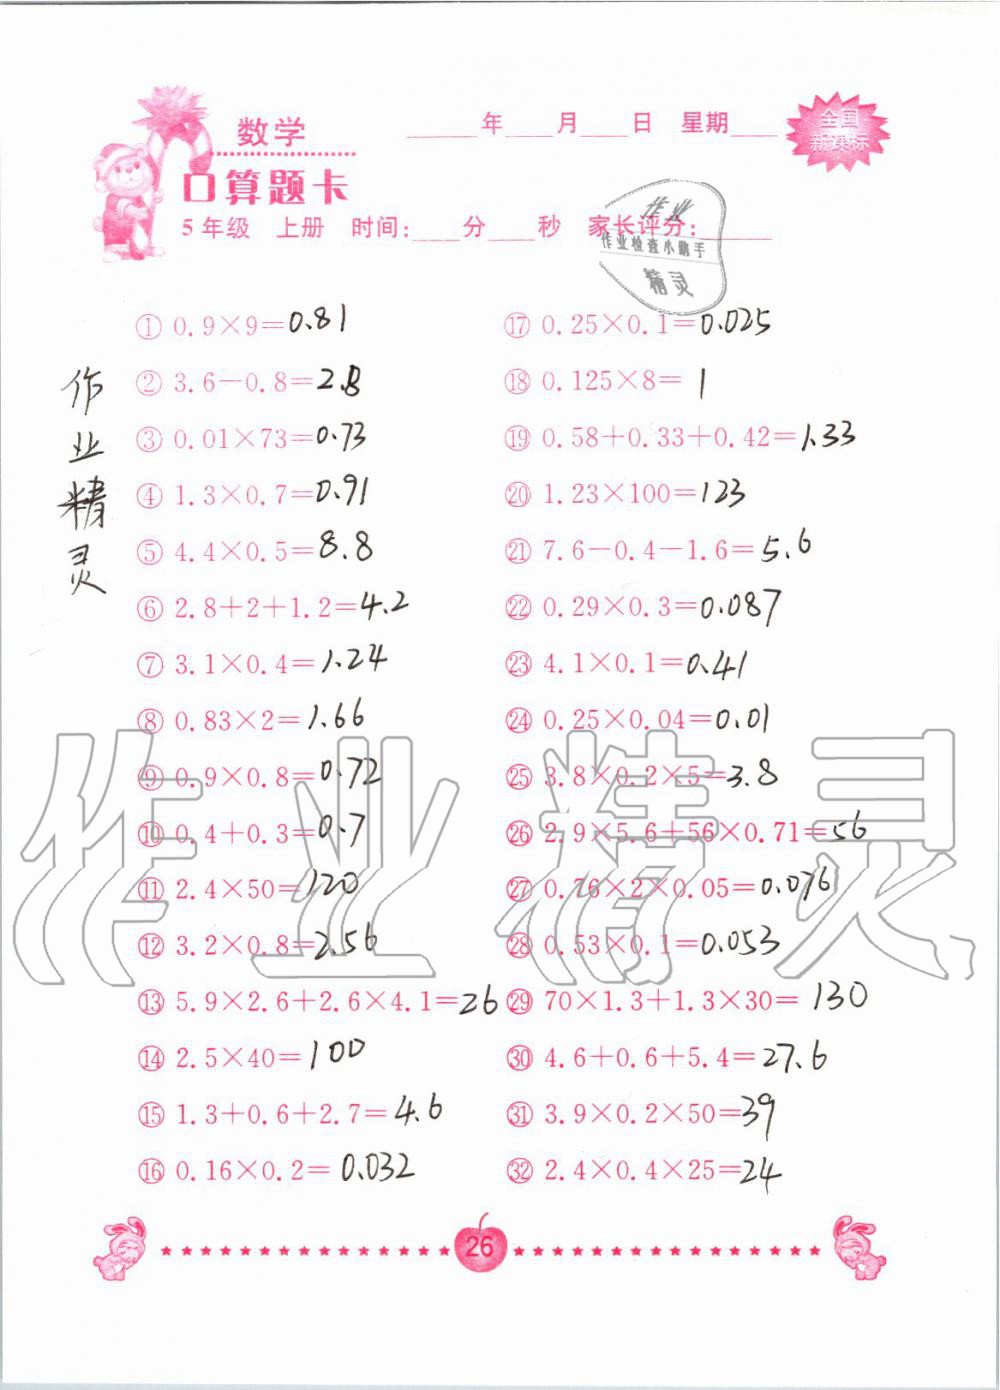 数学
____年____月____日 星期____
全国
新课标
口算题卡
5年级 上册 时间:____分____秒 家长评分:______
作业
作业检查小助手
精灵
作业精灵
① 0.9×9=0.81
② 3.6-0.8=2.8
③ 0.01×73=0.73
④ 1.3×0.7=0.91
⑤ 4.4×0.5=8.8
⑥ 2.8+2+1.2=4.2
⑦ 3.1×0.4=1.24
⑧ 0.83×2=1.66
⑨ 0.9×0.8=0.72
⑩ 0.4+0.3=0.7
⑪ 2.4×50=120
⑫ 3.2×0.8=2.56
⑬ 5.9×2.6+2.6×4.1=26
⑭ 2.5×40=100
⑮ 1.3+0.6+2.7=4.6
⑯ 0.16×0.2=0.032
⑰ 0.25×0.1=0.025
⑱ 0.125×8=1
⑲ 0.58+0.33+0.42=1.33
⑳ 1.23×100=123
㉑ 7.6-0.4-1.6=5.6
㉒ 0.29×0.3=0.087
㉓ 4.1×0.1=0.41
㉔ 0.25×0.04=0.01
㉕ 3.8×0.2×5=3.8
㉖ 2.9×5.6+56×0.71=56
㉗ 0.76×2×0.05=0.076
㉘ 0.53×0.1=0.053
㉙ 70×1.3+1.3×30=130
㉚ 4.6+0.6+5.4=27.6
㉛ 3.9×0.2×50=39
㉜ 2.4×0.4×25=24
作业精灵
26